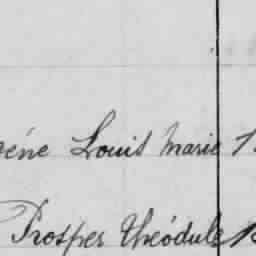 éne Louis Marie 1
Prosper théodule 1